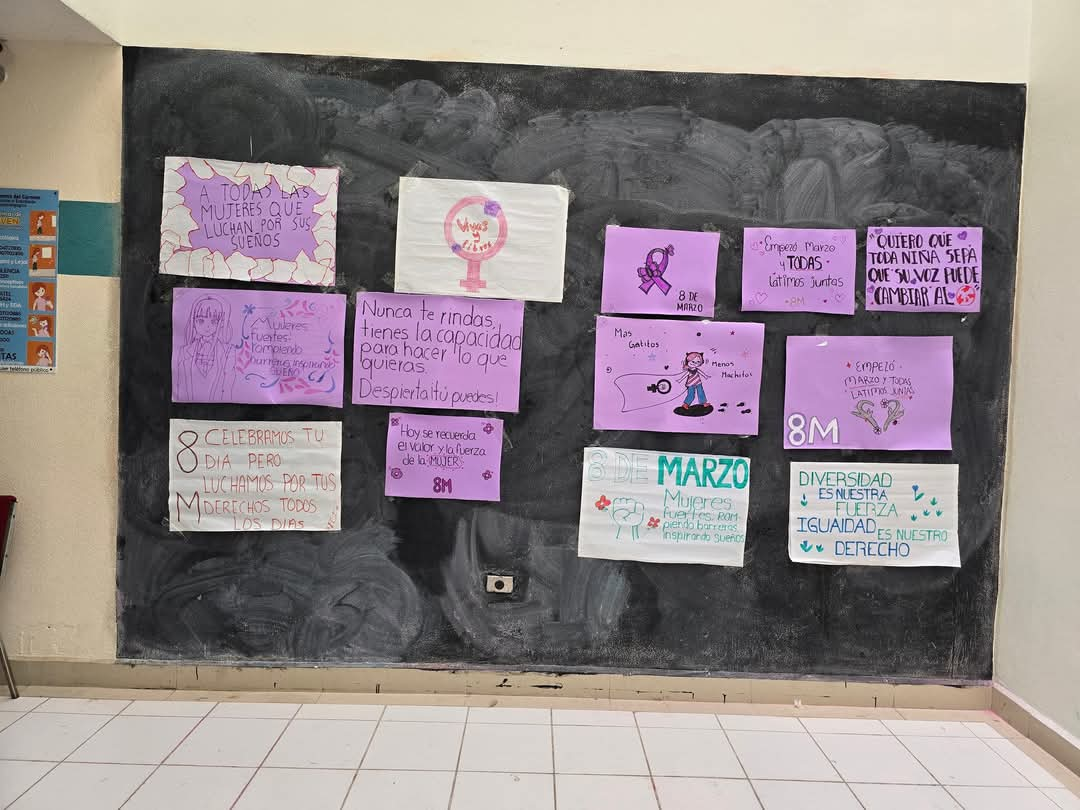 A TODAS LAS
MUJERES QUE
LUCHAN POR SUS
SUEÑOS
Vivas
y
libres
8 DE
MARZO
Empezó Marzo
y TODAS
latimos juntas
8M
"QUIERO QUE
TODA NIÑA SEPA
QUE SU VOZ PUEDE
CAMBIAR AL
Mujeres
fuertes:
rompiendo
barreras, inspirando
SUEÑO
Nunca te rindas,
tienes la capacidad
para hacer lo que
quieras.
Despierta ¡tú puedes!
Mas
Gatitos
Menos
Machitos
EMPEZÓ
MARZO Y TODAS
LATIMOS JUNTAS
8M
8 CELEBRAMOS TU
DIA PERO
LUCHAMOS POR TUS
M DERECHOS TODOS
LOS DIAS
Hoy se recuerda
el valor y la fuerza
de la MUJER
8M
8 DE MARZO
Mujeres
fuertes: Rom-
piendo barreras,
Inspirando sueños
DIVERSIDAD
ES NUESTRA
FUERZA
IGUAIDAD
ES NUESTRO
DERECHO